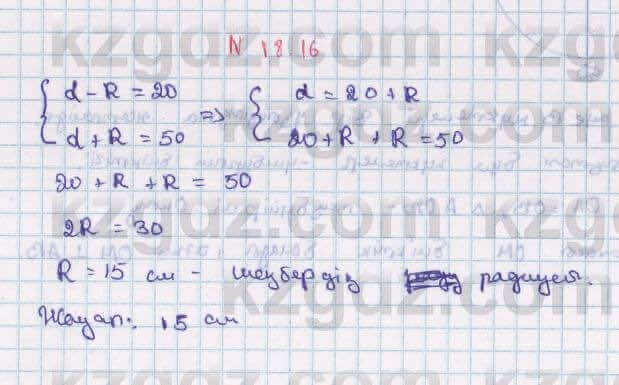 N 18.16
{ d - R = 20 => { d = 20 + R
{ d + R = 50 { 20 + R + R = 50
20 + R + R = 50
2R = 30
R = 15 см - шеңбердің радиусы.
Жауап: 15 см
kzgdz.com